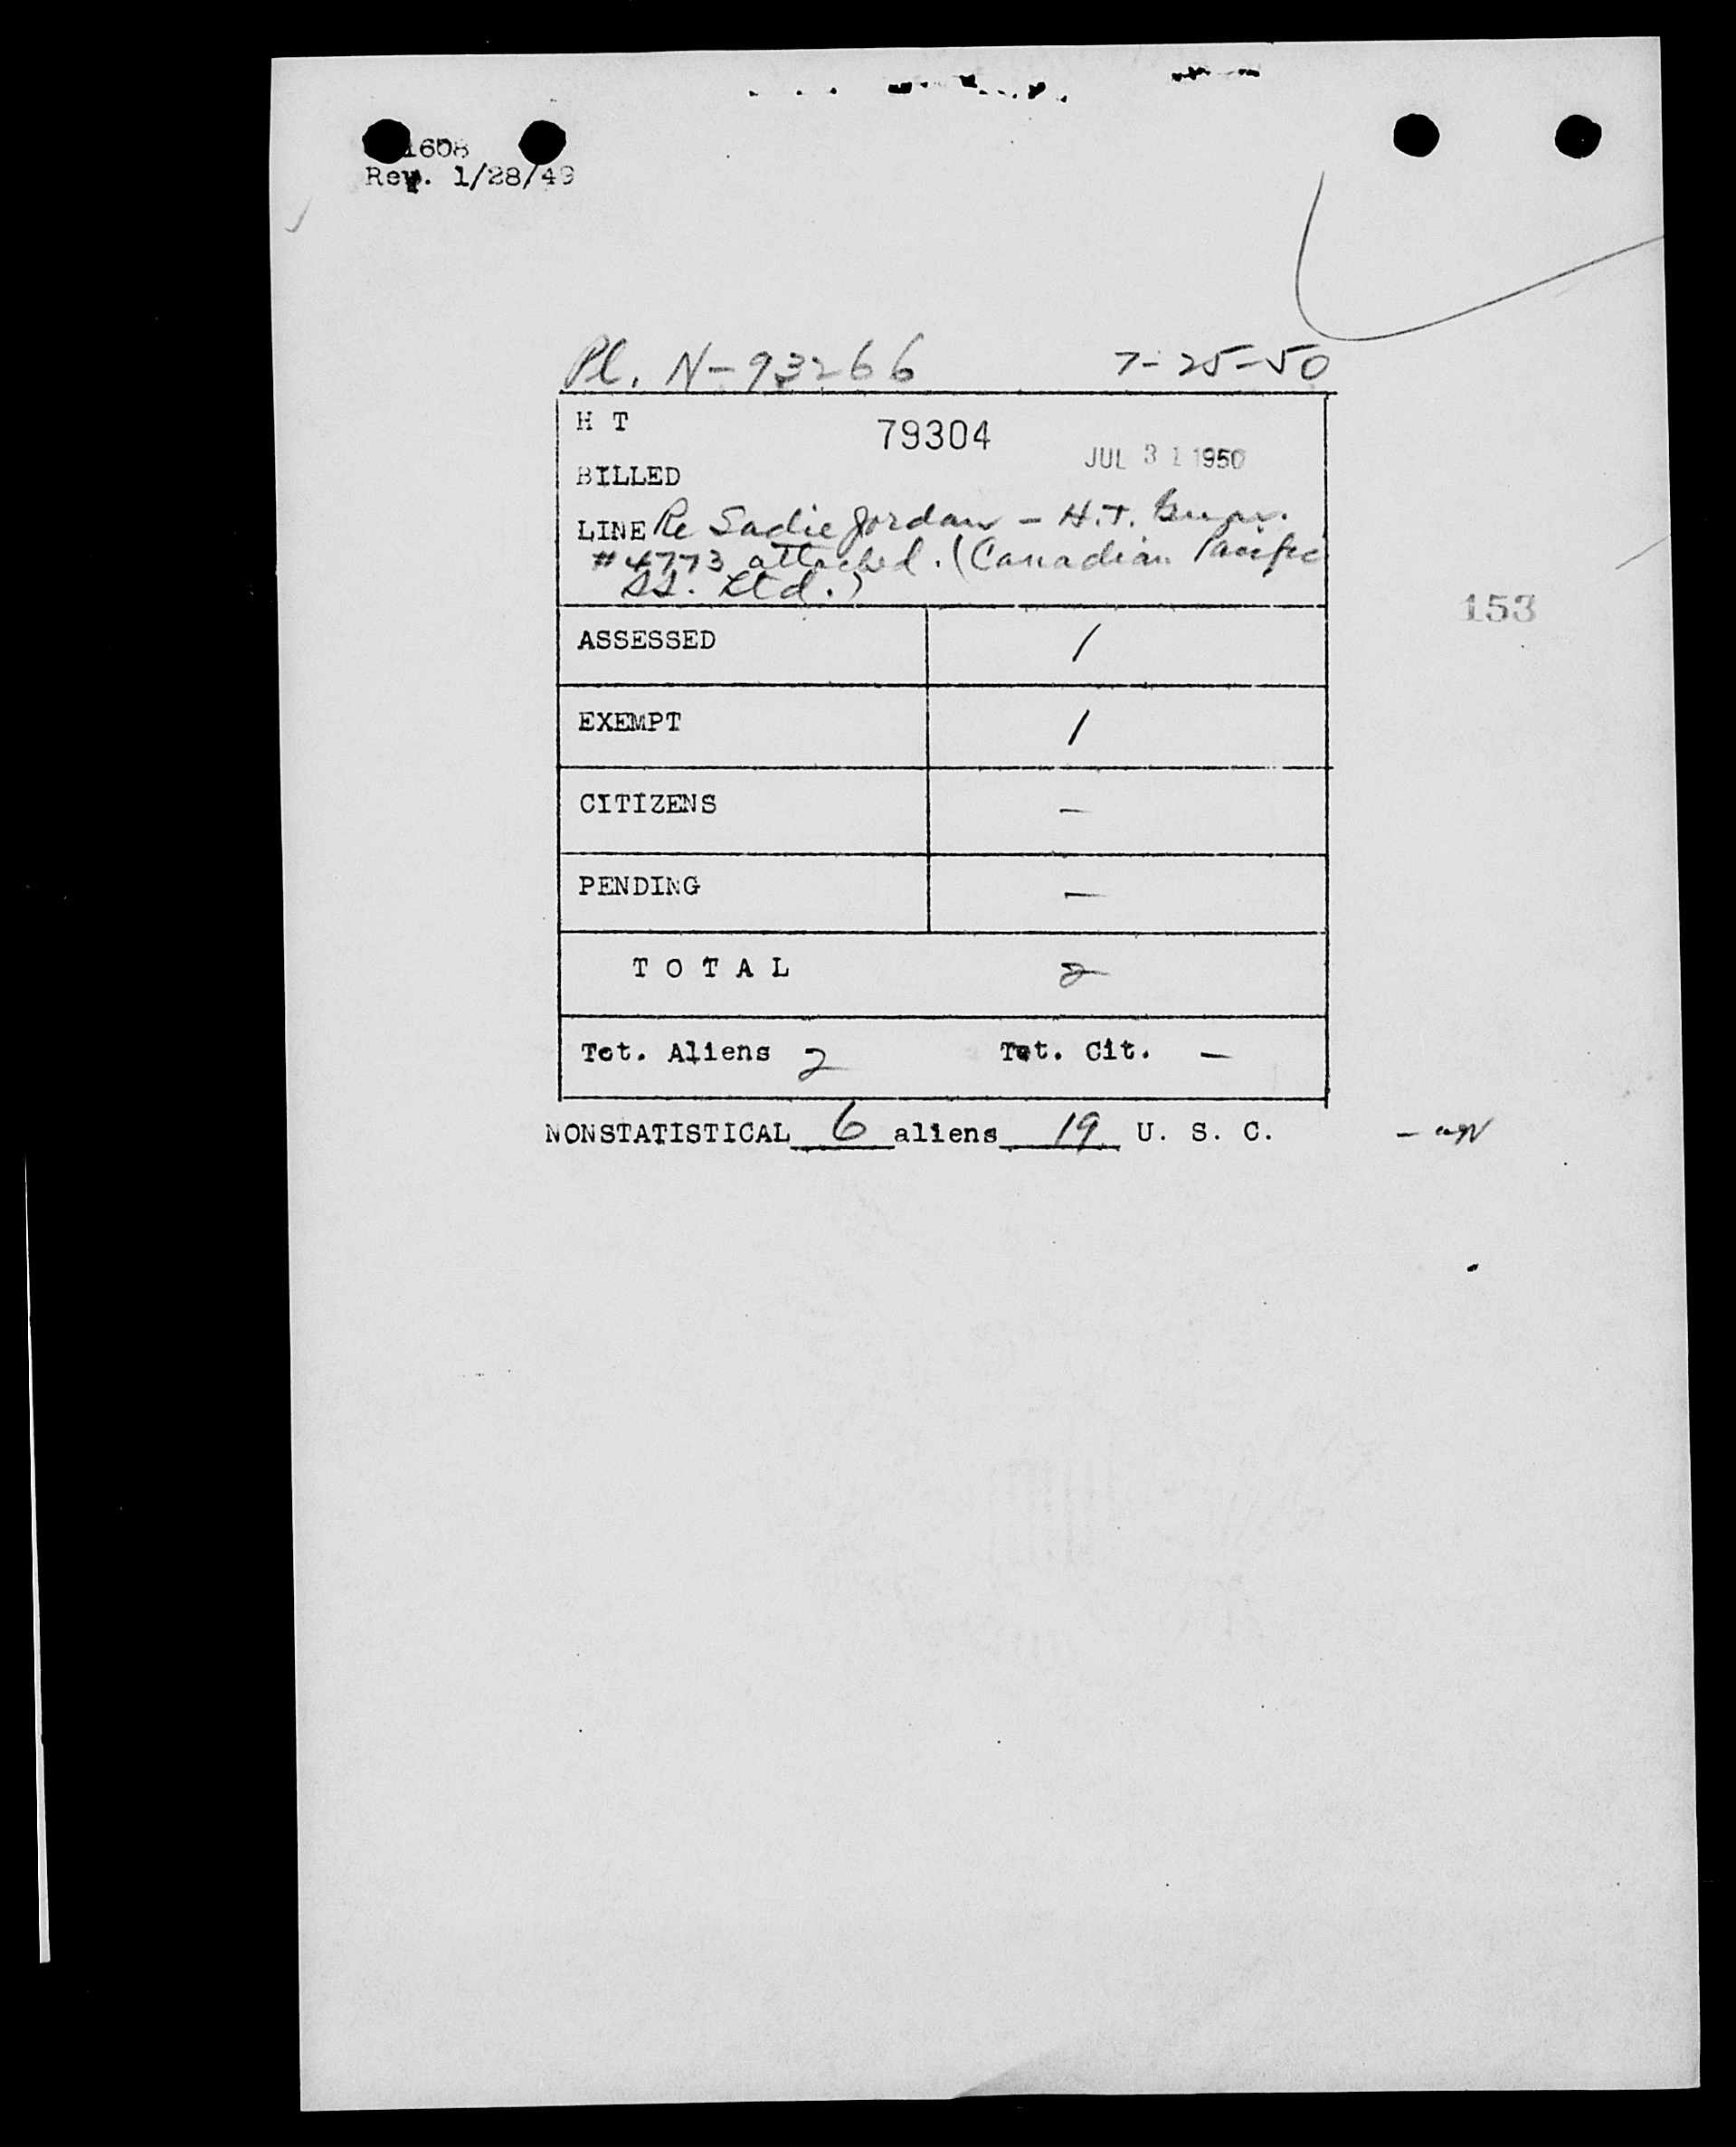 1608
Rev. 1/28/49
Pl. N-93266 7-25-50
H T 79304
JUL 31 1950
BILLED
LINE Re Sadie Jordan - H.T. Guar.
#4773 attached. (Canadian Pacific
SS. Ltd.)
153
ASSESSED 1
EXEMPT 1
CITIZENS -
PENDING -
T O T A L 2
Tot. Aliens 2 Tot. Cit. -
NONSTATISTICAL 6 aliens 19 U. S. C.